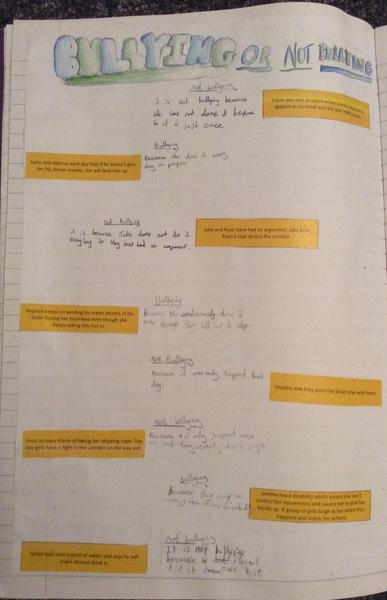 BULLYING OR NOT BULLYING
Not bullying
it is not bullying because
she has not done it before
so it is just once
There was one occasion when
and she was really upset.
Bullying
Because she does it every
day on purpose
Katie tells Marcus each day that if he doesn't give
her his dinner money, she will beat him up.
not bullying
it is because Jake does not do it
everyday so they just had an argument.
Jake and Ryan have had an argument. Jake kicks
Ryan's coat across the corridor.
Bullying
Because He continuously does it
even though they tell him to stop.
Stephen keeps on sending his mates photos of his
sister kissing her boyfriend even though she
keeps asking him not to.
Not Bullying
Because it was only happend that
day.
Maddie and Amy won't let Sarah play with them.
Not bullying
Because it only happend once
Anna accuses Marie of taking her skipping rope. The
two girls have a fight in the corridor on the way out.
Bullying
Because they
disability
Jemima has a disability which means she can't
control her movements and causes her to jerk her
hands up. A group of girls laugh at her when this
happens and mimic her actions.
not bullying
It is not bullying
because
did it
spits into a glass of water and says he will
make Ahmed drink it.